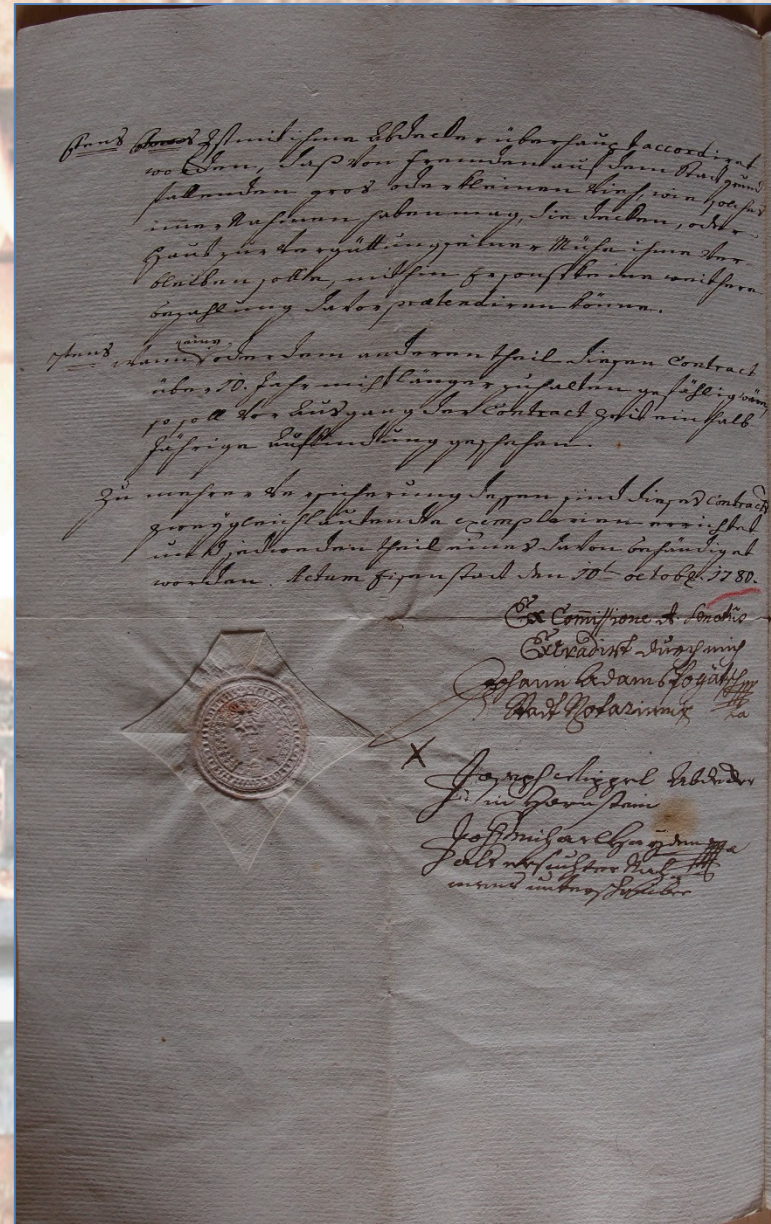 8tens Ist mit ihme Abdecker überhaupt accordiret
worden, daß von fremden auf dem Stadtgrund
fallenden gros oder kleinen Vieh, wie solches
immer Nahmen haben mag, die decken, oder
Haut zur Vergüttung seiner Mühe ihme ver-
bleiben solle, mithin Er sonst keine weithere
bezahlung davor praetendiren könne.
9tens wann ein oder dem anderen theil diesen Contract
über 10. Jahr nicht länger zu halten gefählig wäre,
so soll vor Ausgang der Contract Zeit ein halb
Jährige Aufkündtung geschehen.
Zu mehrer Versicherung dessen sind dieses Contracts
zwey gleichlautende exemplarien errichtet
und jedweden theil eines davon behändiget
worden. Actum Eisenstadt den 10t octobr. 1780.
Ex Commissione A. Senatus
Extradirt durch mich
Johann Adam
Stadt Notarium
X
Joseph Rippel Abdecker
in Hornstein
Joh Michael Hayden
als ersuchter Nah-
mens unterschreiber